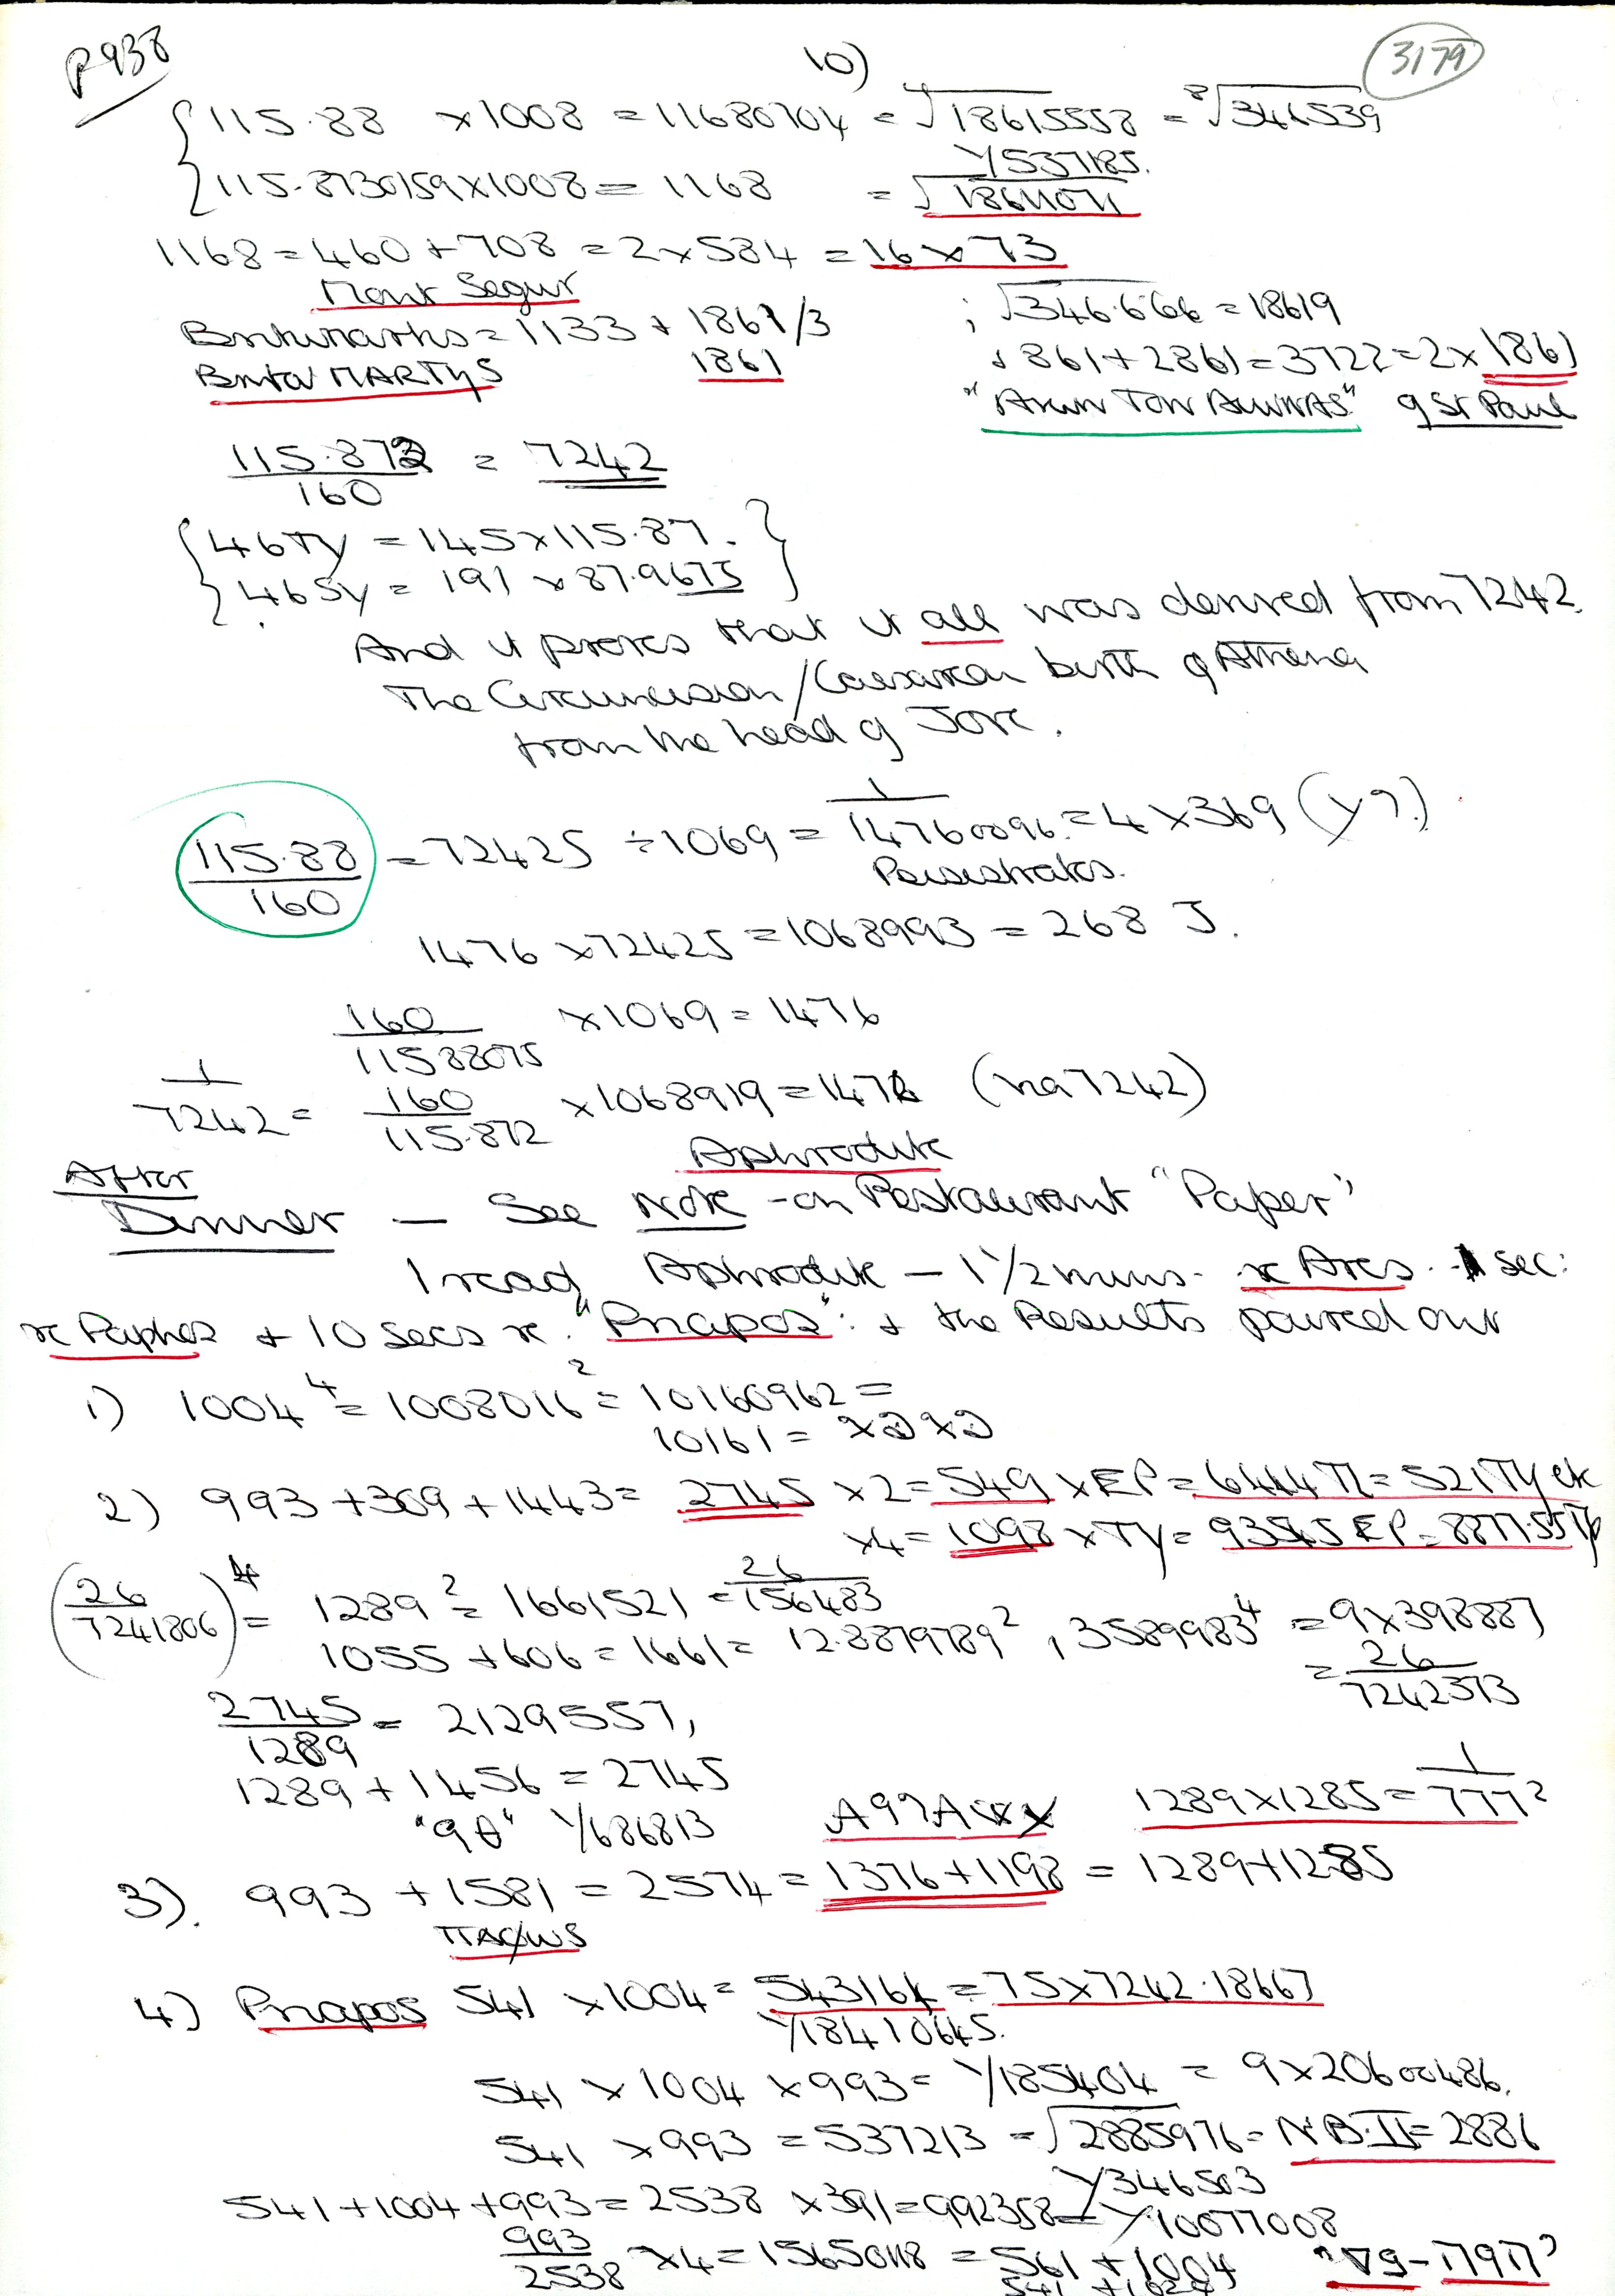 P938
10)
3179
115.88 ×1008 = 11680704 = √18615558 = ⁸√346539
1/537185.
115.8730159×1008 = 1168 = √18611071
1168 = 460 + 708 = 2×584 = 16×73
Mont Segur
; √346.666 = 18619
= 1133 + 1861/3
1861
+ 2861 = 3722 = 2×1861
MARTyS
" " of St Paul
115.872/160 = 7242
46Ty = 145×115.87.
46Sy = 191 × 87.9675
And it proves that it all was derived from 7242.
The Circumcision/Caesarean birth of Athena
from the head of Jove.
115.88/160 = 72425 ÷1069 = 1/14760096 = 4×369 (y?)
1476 ×72425 = 1068993 = 268 J.
160/11588075 ×1069 = 1476
1/7242 = 160/115.872 ×1068919 = 1476 ( 7242)
Aphrodite
After
Dinner — See Note - on Restaurant "Paper"
I read Aphrodite — 1 1/2 mins. re Ares. 1 sec:
re Paphos + 10 secs re. "Priapos": + the Results poured out
1) 1004⁴ = 1008016² = 10160962 =
10161 =
2) 993 + 309 + 1443 = 2745 ×2 = 549 × EP = 6444 TL = 521Ty etc
×4 = 1098 ×Ty = 93545 EP = 8877.55
(26/7241806)⁴ = 1289² = 1661521 = 26/156483
1055 + 606 = 1661 = 12.8879789², 3589983⁴ = 9×398887
= 26/7242373
2745/1289 = 2129557,
1289 + 1456 = 2745
"9θ" 1/686813
1289×1285 = 1/777²
3). 993 + 1581 = 2574 = 1376 + 1198 = 1289+1285
4) Priapos 541 ×1004 = 543164 = 75×7242.18667
1/18410645.
541 × 1004 ×993 = 1/185404 = 9×20600486.
541 ×993 = 537213 = √2885976 = N.B. II = 2886
1/346503
541 +1004 +993 = 2538 ×391 = 992358 = 1/10077008
993/2538 ×4 = 1565018 = 561 + 1004